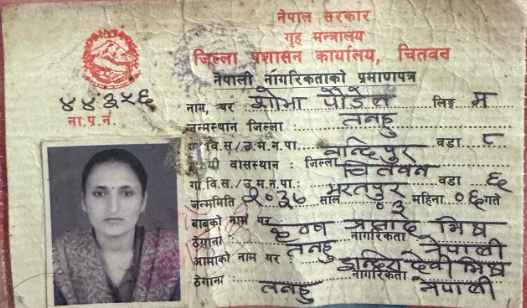 नेपाल सरकार
गृह मन्त्रालय
जिल्ला प्रशासन कार्यालय, चितवन
नेपाली नागरिकताको प्रमाणपत्र
४४३५६
ना.प्र.नं.
नाम, थर शोभा पौडेल लिङ्ग म
जन्मस्थान जिल्ला : तनहु
गा.वि.स./उ.म.न.पा. बन्दिपुर वडा ८
वासस्थान : जिल्ला चितवन
गा.वि.स./उ.म.न.पा.: भरतपुर वडा ६
जन्ममिति २०३८ साल ०३ महिना ०६ गते
बाबुको नाम थर प्रसाद मिश्र
ठेगाना : तनहु नागरिकता नेपाली
आमाको नाम थर इन्दिरा देवी मिश्र
ठेगाना : तनहु नागरिकता नेपाली